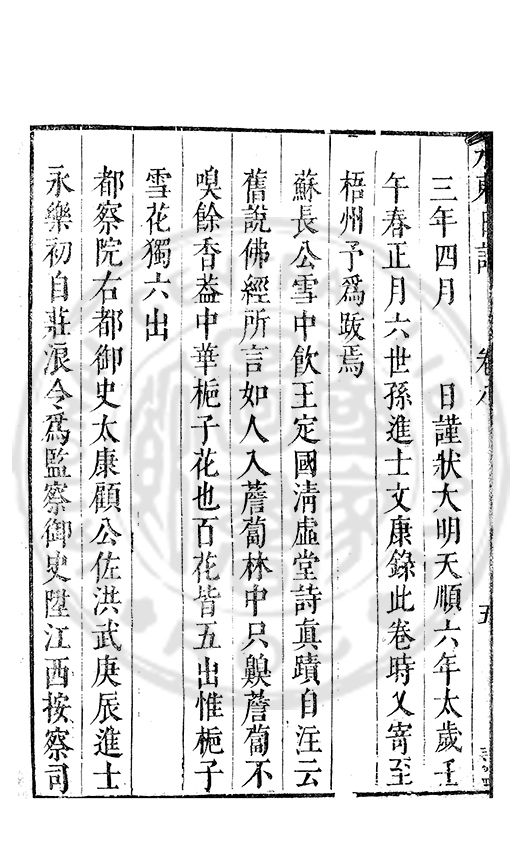 三年四月　　日謹狀大明天順六年太歲壬
午春正月六世孫進士文康錄此卷時又寄至
梧州予爲跋焉
蘇長公雪中飮王定國淸虛堂詩眞蹟自注云
舊說佛經所言如人入薝蔔林中只齅薝蔔不
嗅餘香葢中華梔子花也百花皆五出惟梔子
雪花獨六出
都察院右都御史太康顧公佐洪武庚辰進士
永樂初自莊浪令爲監察御史陞江西按察司